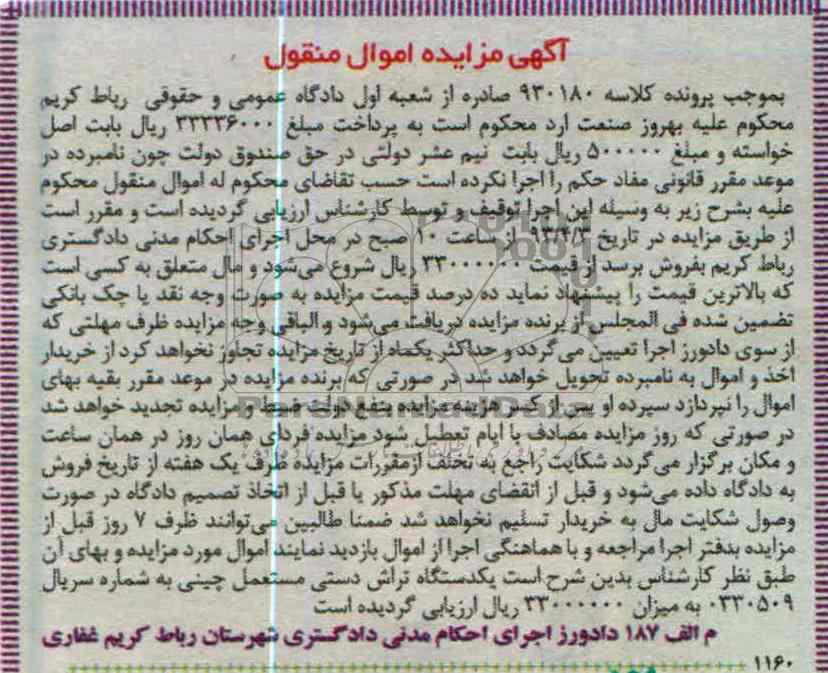 آگهی مزایده اموال منقول
بموجب پرونده کلاسه ۹۳۰۱۸۰ صادره از شعبه اول دادگاه عمومی و حقوقی رباط کریم
محکوم علیه بهروز صنعت ارد محکوم است به پرداخت مبلغ ۳۳۳۳۶۰۰۰ ریال بابت اصل
خواسته و مبلغ ۵۰۰۰۰۰ ریال بابت نیم عشر دولتی در حق صندوق دولت چون نامبرده در
موعد مقرر قانونی مفاد حکم را اجرا نکرده است حسب تقاضای محکوم له اموال منقول محکوم
علیه بشرح زیر به وسیله این اجرا توقیف و توسط کارشناس ارزیابی گردیده است و مقرر است
از طریق مزایده در تاریخ ۹۳/۴/۳ از ساعت ۱۰ صبح در محل اجرای احکام مدنی دادگستری
رباط کریم بفروش برسد از قیمت ۳۳۰۰۰۰۰۰ ریال شروع می‌شود و مال متعلق به کسی است
که بالاترین قیمت را پیشنهاد نماید ده درصد قیمت مزایده به صورت وجه نقد یا چک بانکی
تضمین شده فی المجلس از برنده مزایده دریافت می‌شود و الباقی وجه مزایده ظرف مهلتی که
از سوی دادورز اجرا تعیین می گردد و حداکثر یکماه از تاریخ مزایده تجاوز نخواهد کرد از خریدار
اخذ و اموال به نامبرده تحویل خواهد شد در صورتی که برنده مزایده در موعد مقرر بقیه بهای
اموال را نپردازد سپرده او پس از کسر هزینه مزایده بنفع دولت ضبط و مزایده تجدید خواهد شد
در صورتی که روز مزایده مصادف با ایام تعطیل شود مزایده فردای همان روز در همان ساعت
و مکان برگزار می گردد شکایت راجع به تخلف ازمقررات مزایده ظرف یک هفته از تاریخ فروش
به دادگاه داده می‌شود و قبل از انقضای مهلت مذکور یا قبل از اتخاذ تصمیم دادگاه در صورت
وصول شکایت مال به خریدار تسلیم نخواهد شد ضمنا طالبین می‌توانند ظرف ۷ روز قبل از
مزایده بدفتر اجرا مراجعه و با هماهنگی اجرا از اموال بازدید نمایند اموال مورد مزایده و بهای آن
طبق نظر کارشناس بدین شرح است یکدستگاه تراش دستی مستعمل چینی به شماره سریال
۰۳۳۰۵۰۹ به میزان ۳۳۰۰۰۰۰۰ ریال ارزیابی گردیده است
م الف ۱۸۷ دادورز اجرای احکام مدنی دادگستری شهرستان رباط کریم غفاری
۱۱۶۰